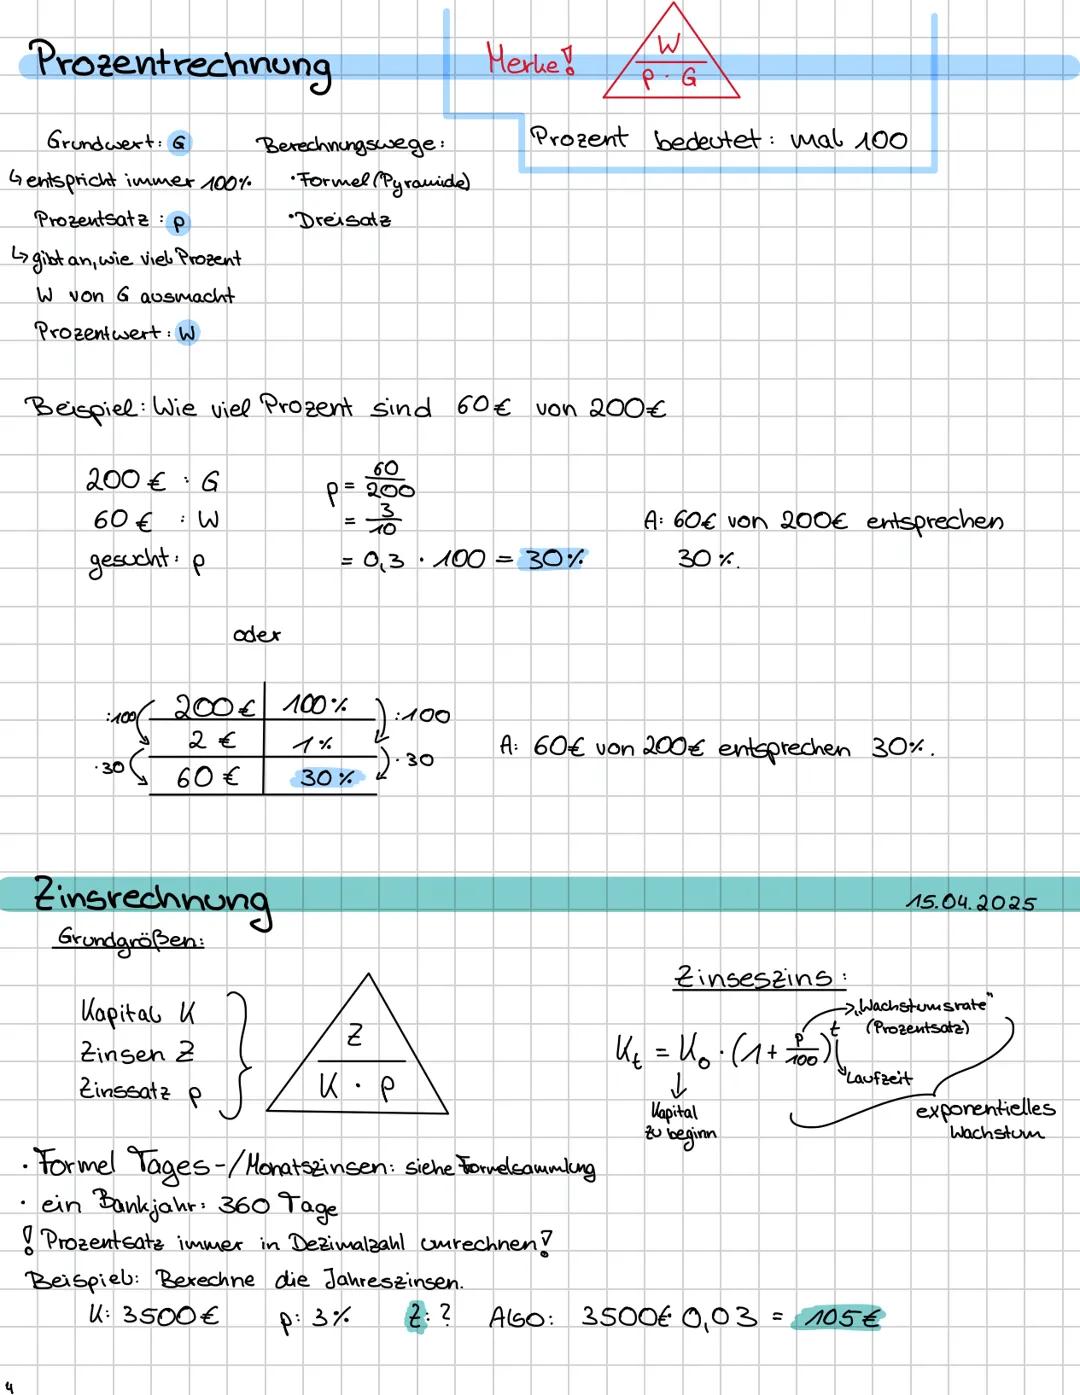 Prozentrechnung
Merke!
W
p · G
Prozent bedeutet: mal 100
Grundwert: G
↳ entspricht immer 100%
Prozentsatz: p
↳ gibt an, wie viel Prozent
W von G ausmacht
Prozentwert: W
Berechnungswege:
• Formel (Pyramide)
• Dreisatz
Beispiel: Wie viel Prozent sind 60€ von 200€
200€ : G
60€ : W
gesucht: p
p = 60/200
= 3/10
= 0,3 · 100 = 30%
A: 60€ von 200€ entsprechen
30%.
oder
:100 200€ 100% :100
2€ 1%
·30 60€ 30% ·30
A: 60€ von 200€ entsprechen 30%.
Zinsrechnung
15.04.2025
Grundgrößen:
Kapital K
Zinsen Z
Zinssatz p
Z
K · p
Zinseszins:
→ „Wachstumsrate"
(Prozentsatz)
K_t = K_0 · (1 + p/100)^t
Laufzeit
Kapital
zu beginn
exponentielles
Wachstum
· Formel Tages-/Monatszinsen: siehe Formelsammlung
· ein Bankjahr: 360 Tage
! Prozentsatz immer in Dezimalzahl umrechnen!
Beispiel: Berechne die Jahreszinsen.
K: 3500€ p: 3% Z: ? Also: 3500€ 0,03 = 105€
4